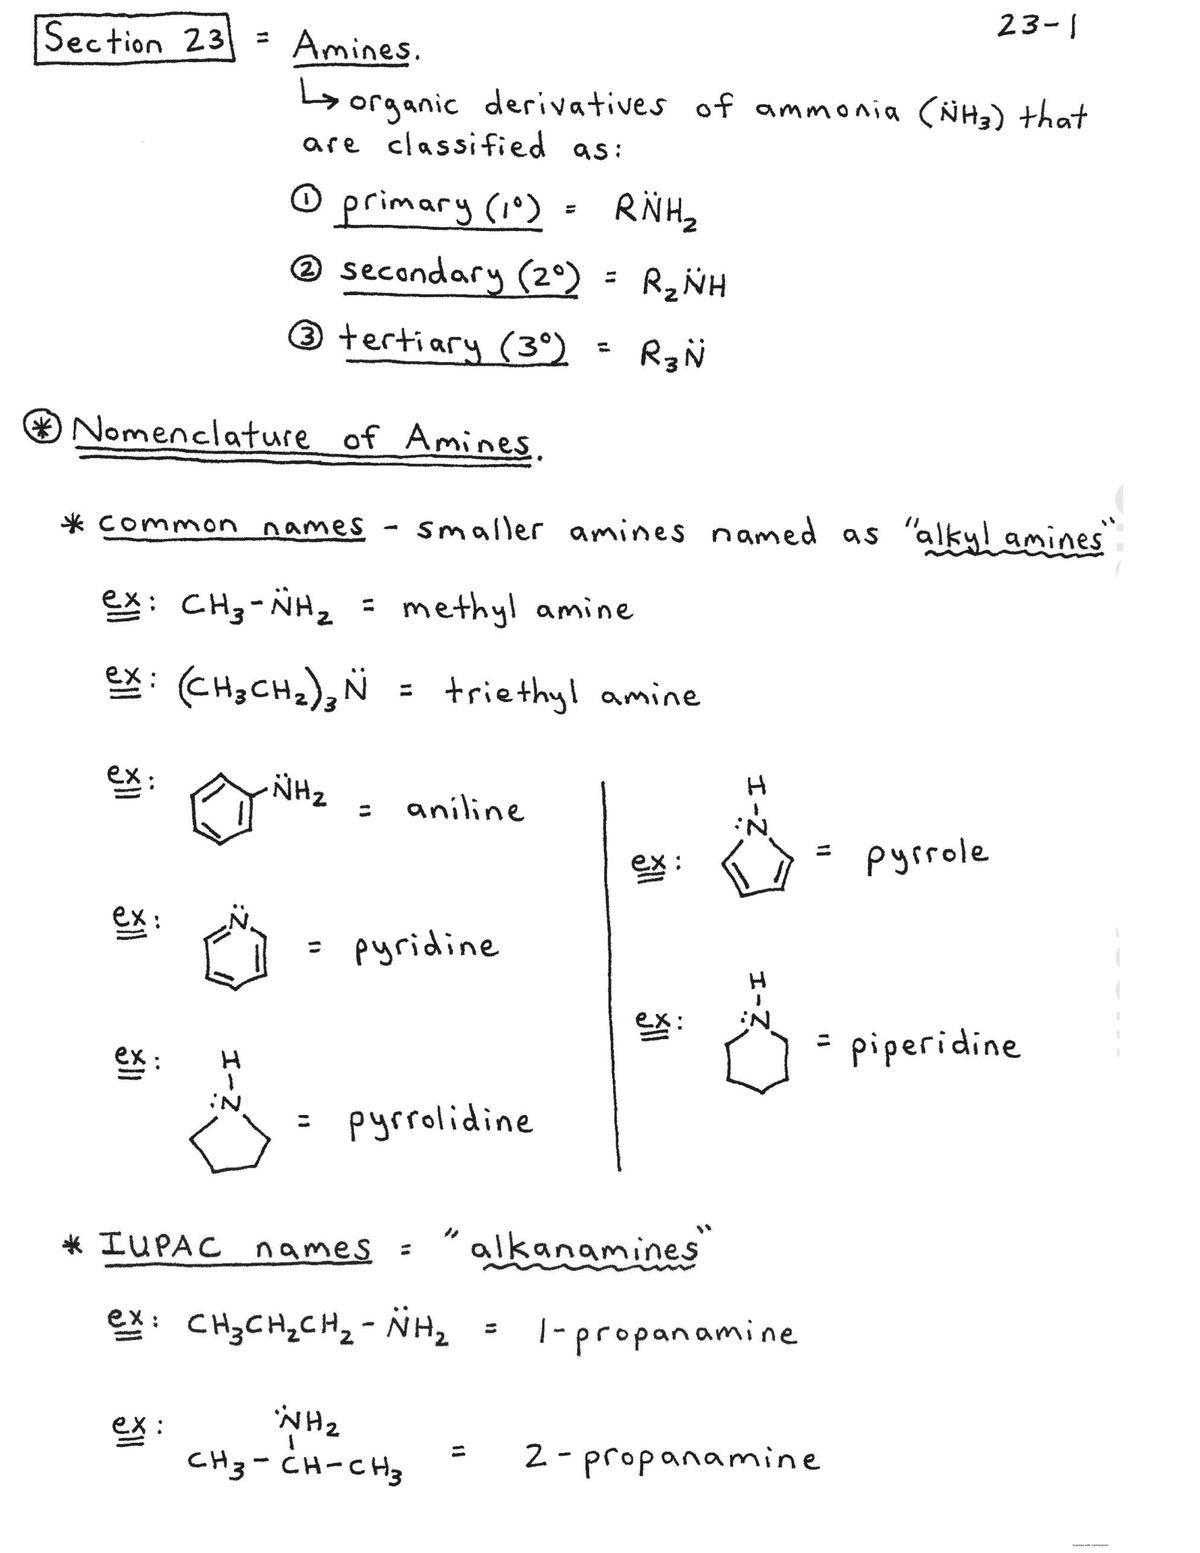 23-1
Section 23 = Amines.
↳ organic derivatives of ammonia (N̈H₃) that
are classified as:
① primary (1°) = RN̈H₂
② secondary (2°) = R₂N̈H
③ tertiary (3°) = R₃N̈
⊛ Nomenclature of Amines.
* common names - smaller amines named as "alkyl amines"
ex: CH₃-N̈H₂ = methyl amine
ex: (CH₃CH₂)₃N̈ = triethyl amine
ex: N̈H₂ = aniline
ex: N̈ = pyridine
ex: H
:N
= pyrrolidine
ex: H
:N
= pyrrole
ex: H
:N
= piperidine
* IUPAC names = "alkanamines"
ex: CH₃CH₂CH₂-N̈H₂ = 1-propanamine
ex: N̈H₂
CH₃-CH-CH₃ = 2-propanamine